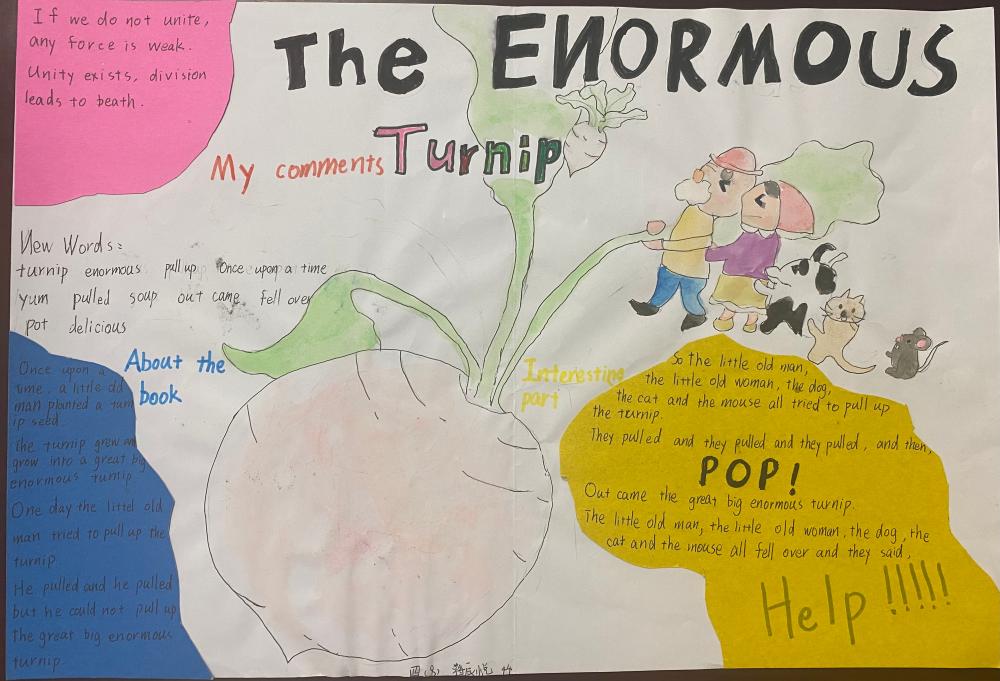 If we do not unite,
any force is weak.
Unity exists, division
leads to death.
The ENORMOUS
Turnip
My comments
New Words:
turnip enormous pull up Once upon a time
yum pulled soup out came fell over
pot delicious
About the
book
Once upon a
time, a little old
man planted a turn
ip seed.
The turnip grew an
grow into a great big
enormous turnip
One day the littel old
man tried to pull up the
turnip
He pulled and he pulled
but he could not pull up
the great big enormous
turnip.
Interesting
part
So the little old man,
the little old woman, the dog,
the cat and the mouse all tried to pull up
the turnip.
They pulled and they pulled and they pulled, and then,
POP!
Out came the great big enormous turnip.
The little old man, the little old woman, the dog, the
cat and the mouse all fell over and they said,
Help !!!!!
四(8) 44